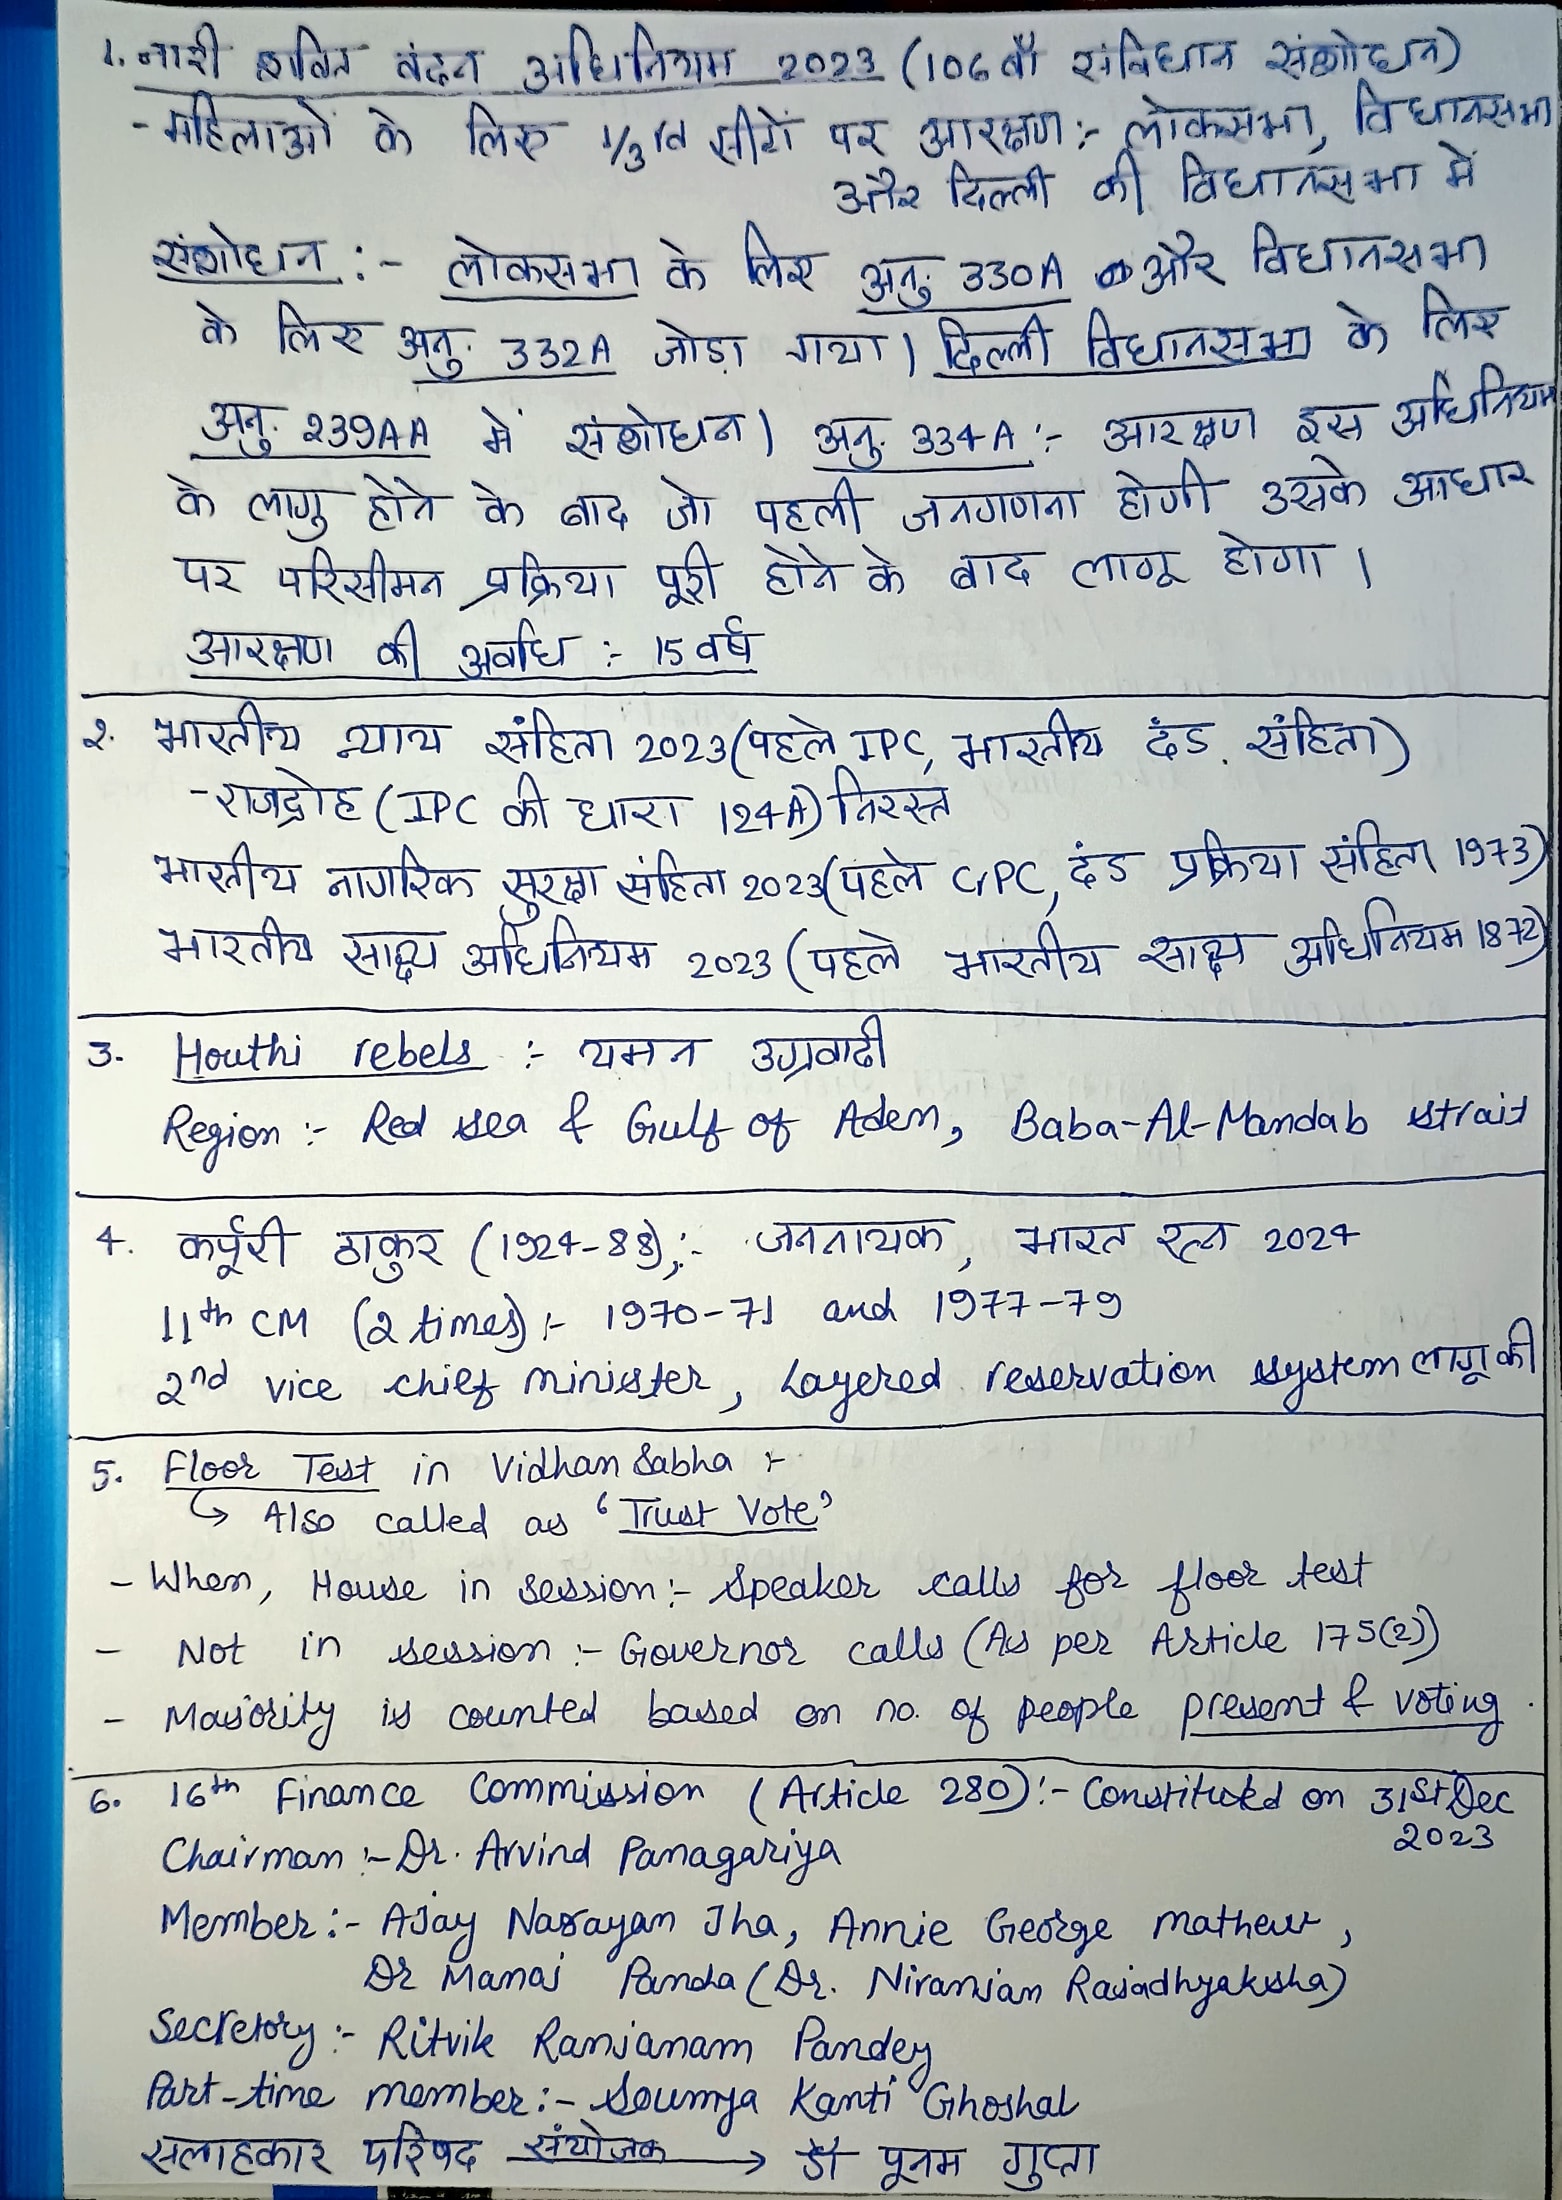 1. नारी शक्ति वंदन अधिनियम 2023 (106 वाँ संविधान संशोधन)
- महिलाओं के लिए 1/3 सीटों पर आरक्षण :- लोकसभा, विधानसभा
और दिल्ली की विधानसभा में
संशोधन :- लोकसभा के लिए अनु. 330A और विधानसभा
के लिए अनु. 332A जोड़ा गया। दिल्ली विधानसभा के लिए
अनु. 239AA में संशोधन। अनु. 334A :- आरक्षण इस अधिनियम
के लागु होने के बाद जो पहली जनगणना होगी उसके आधार
पर परिसीमन प्रक्रिया पूरी होने के बाद लागू होगा।
आरक्षण की अवधि :- 15 वर्ष
2. भारतीय न्याय संहिता 2023 (पहले IPC, भारतीय दंड. संहिता)
- राजद्रोह (IPC की धारा 124A) निरस्त
भारतीय नागरिक सुरक्षा संहिता 2023 (पहले CrPC, दंड प्रक्रिया संहिता 1973)
भारतीय साक्ष्य अधिनियम 2023 (पहले भारतीय साक्ष्य अधिनियम 1872)
3. Houthi rebels :- यमन उग्रवादी
Region :- Red sea & Gulf of Aden, Baba-Al-Mandab strait
4. कर्पूरी ठाकुर (1924-88) :- जननायक, भारत रत्न 2024
11th CM (2 times) :- 1970-71 and 1977-79
2nd vice chief minister, Layered reservation system लागू की
5. Floor Test in Vidhan Sabha :-
↳ Also called as 'Trust Vote'
- When, House in session :- Speaker calls for floor test
- Not in session :- Governor calls (As per Article 175(2))
- Majority is counted based on no. of people present & voting.
6. 16th Finance Commission (Article 280) :- Constituted on 31st Dec
2023
Chairman :- Dr. Arvind Panagariya
Member :- Ajay Narayan Jha, Annie George Mathew,
Dr Manoj Panda (Dr. Niranjan Rajadhyaksha)
Secretory :- Ritvik Ranjanam Pandey
Part-time member :- Soumya Kanti Ghoshal
सलाहकार परिषद संयोजक → डॉ पूनम गुप्ता